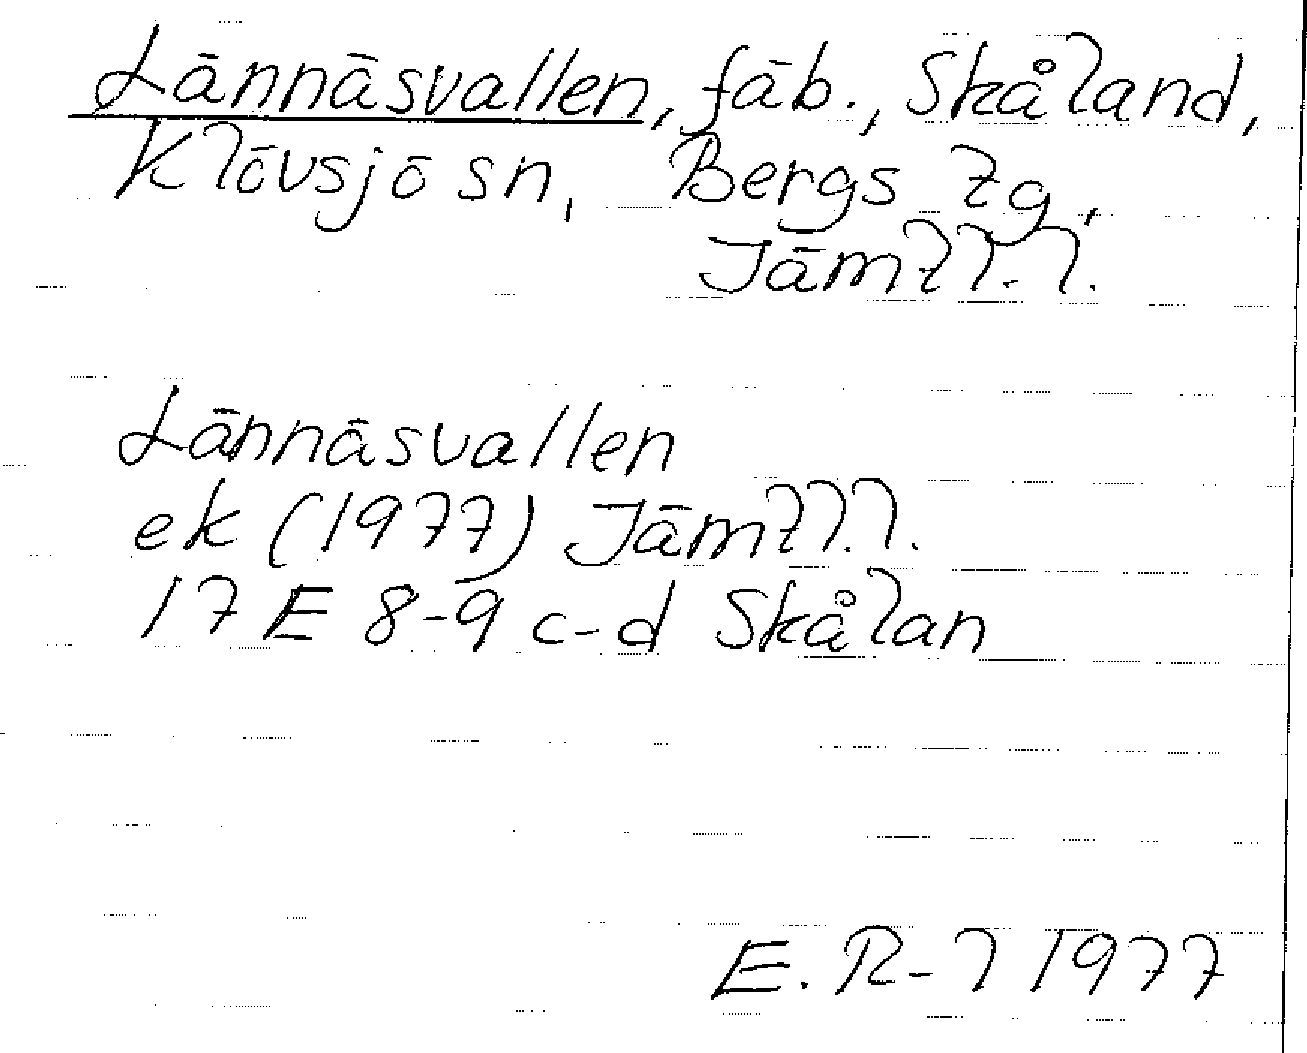 Lännäsvallen, fäb., Skåland,
Klövsjö sn, Bergs tg,
Jämtl.l.
Lännäsvallen
ek (1977) Jämtl.l.
17 E 8-9 c-d Skålan
E.R-l 1977